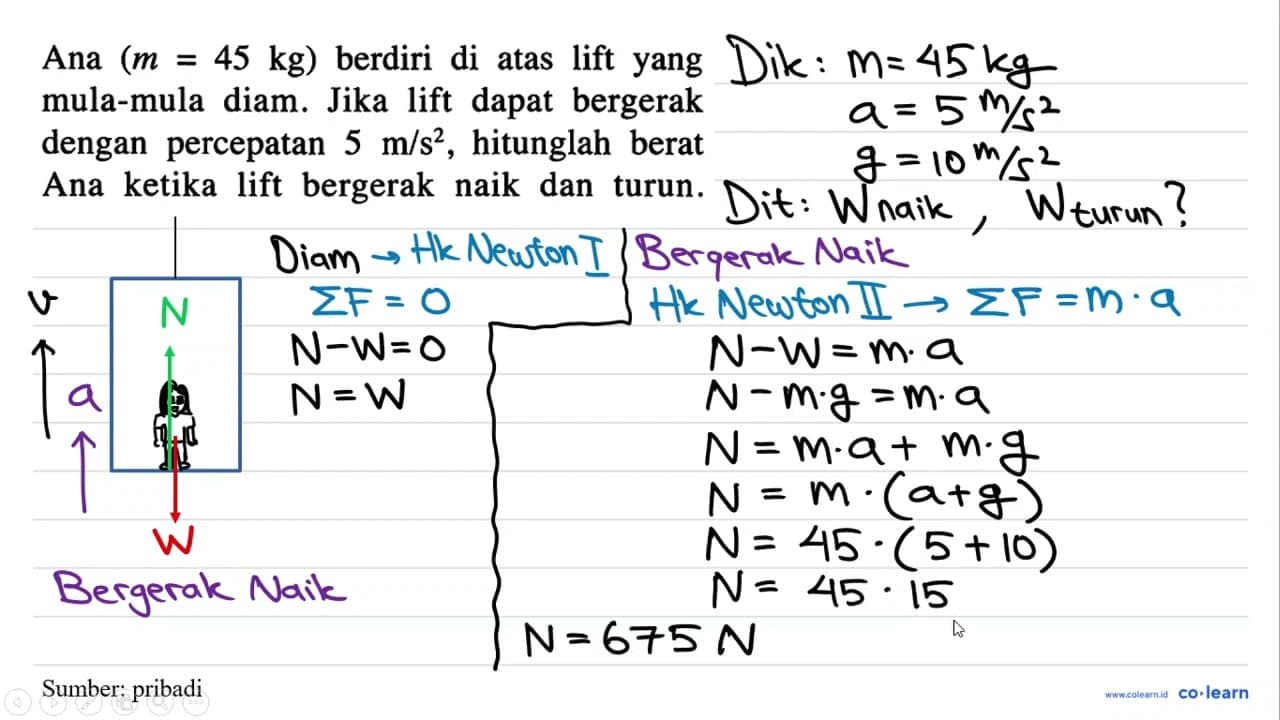 Ana (m = 45 kg) berdiri di atas lift yang
mula-mula diam. Jika lift dapat bergerak
dengan percepatan 5 m/s², hitunglah berat
Ana ketika lift bergerak naik dan turun.
Dik: m = 45 kg
a = 5 m/s²
g = 10 m/s²
Dit: W naik, W turun?
v
a
N
W
Bergerak Naik
Diam → Hk Newton I
ΣF = 0
N - W = 0
N = W
Bergerak Naik
Hk Newton II → ΣF = m · a
N - W = m · a
N - m · g = m · a
N = m · a + m · g
N = m · (a + g)
N = 45 · (5 + 10)
N = 45 · 15
N = 675 N
Sumber: pribadi
www.colearn.id co·learn